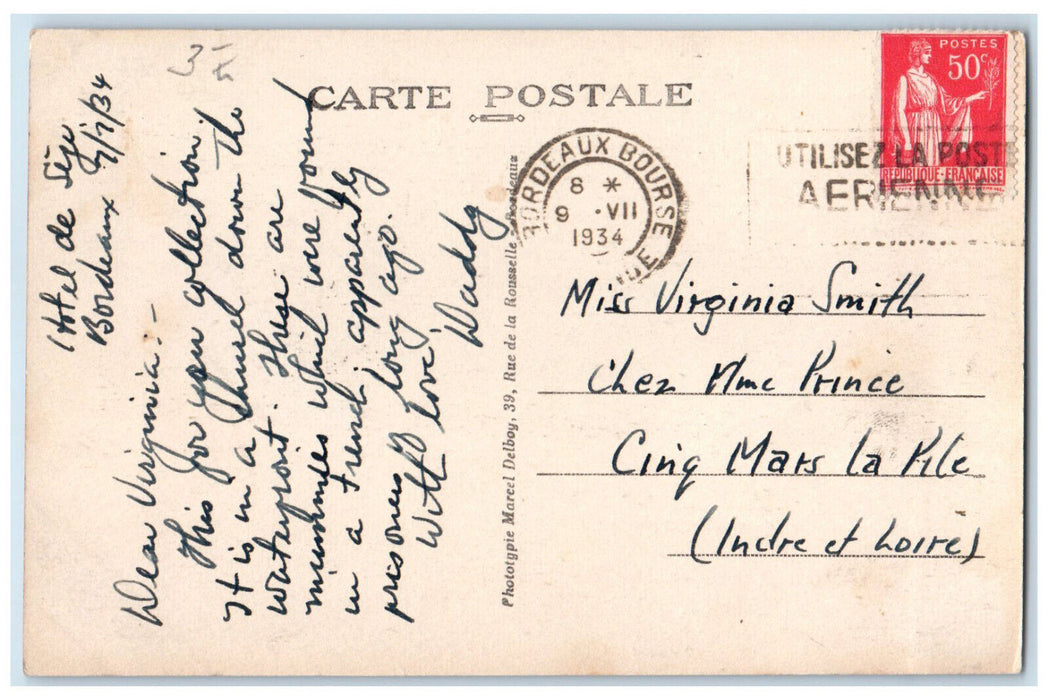 CARTE POSTALE
POSTES
50c
REPUBLIQUE-FRANCAISE
BORDEAUX BOURSE
8 *
9 ·VII
1934
UTILISEZ LA POSTE
AERIENNE
Hotel de Sèze
Bordeaux 9/7/34
Dear Virginia:-
This for you collection
It is in a Church down the
waterfront. These are
mummies which were found
in a trench, apparently
prisoners long ago.
With love
Daddy
Phototypie Marcel Delboy, 39, Rue de la Rousselle - Bordeaux
Miss Virginia Smith
Chez Mme Prince
Cinq Mars la Pile
(Indre et Loire)